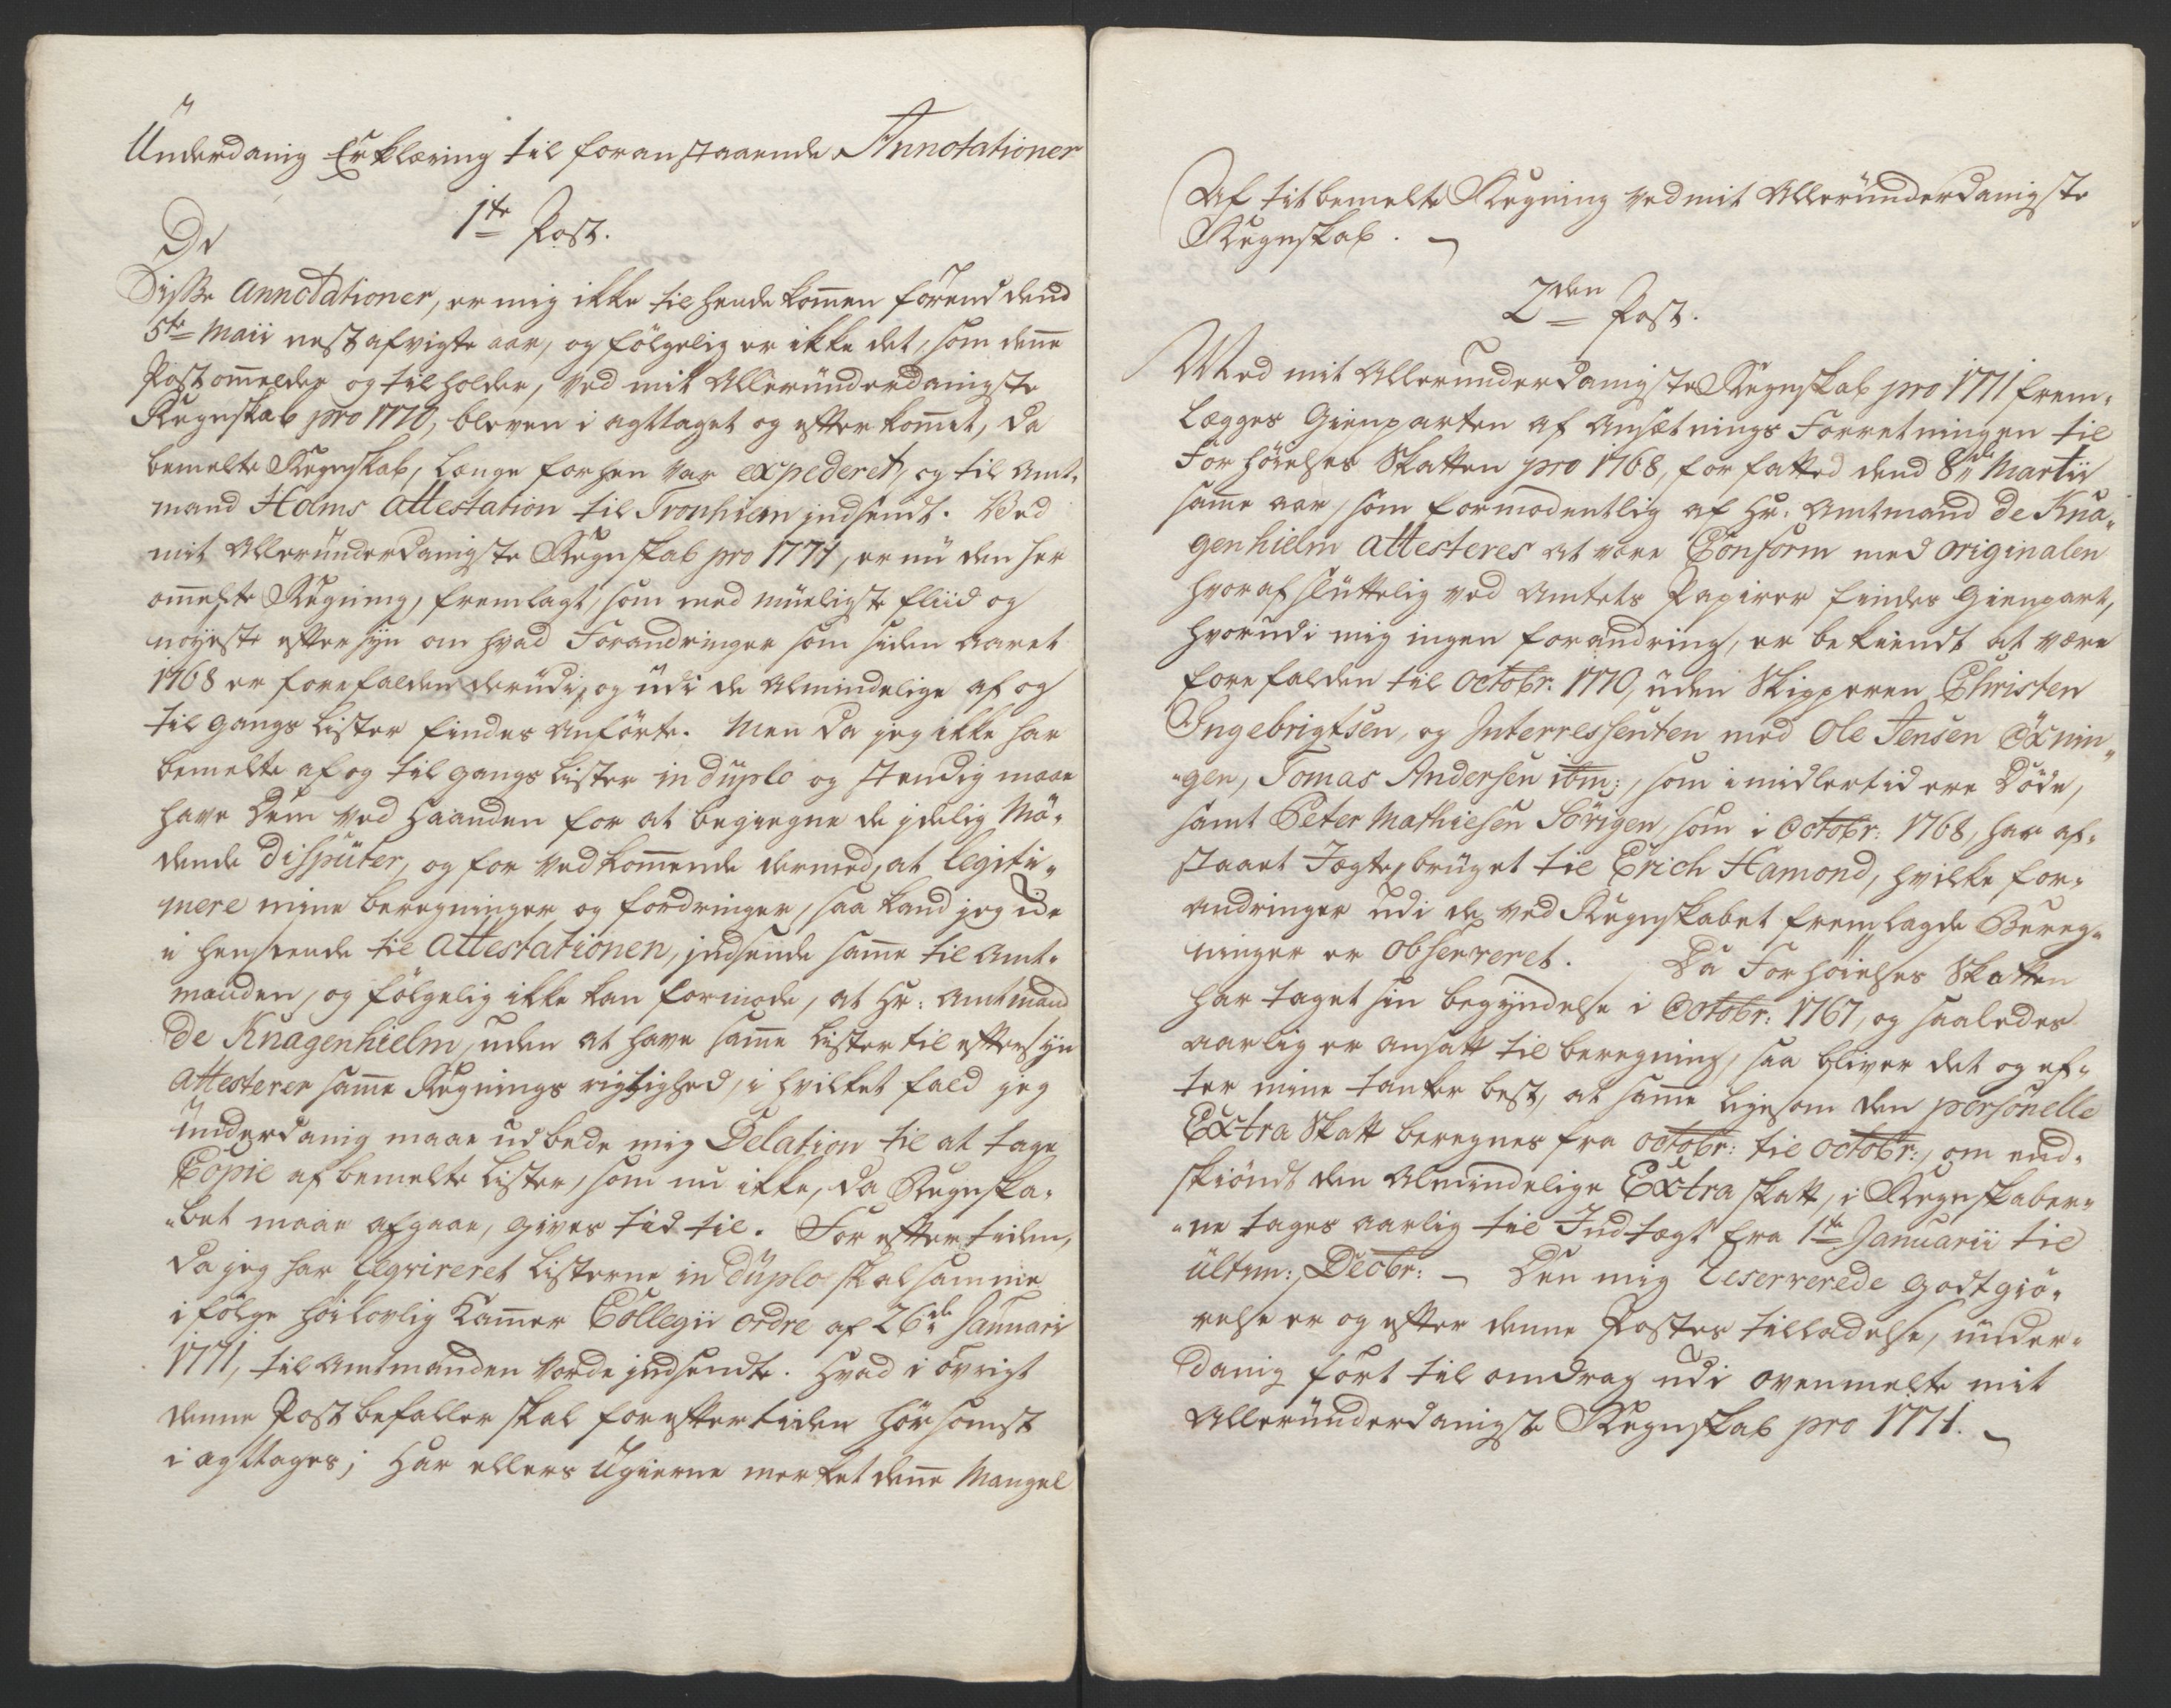 Underdanig Erklæring til foranstaaende Annotationer
1te Post.
Da
Disse Annotationer, er mig ikke tilhende kom̄en förend dend
5te Maii nestafvigte aar, og fölgelig er ikke det, som den̄e
Post om̄elder og tilholder, ved mit Alleründerdanigste
Regnskab pro 1770, bleven i agttaget og efterkom̄et, da
bemelte Regnskab, længe forhen var expederet, og til Amt-
mand Holms Attestation til Tronhiem indsendt. Ved
mit Alleründerdanigste Regnskab pro 1771, er nü den her
om̄elte Regning, fremlagt, som med müeligste fliid og
nöyeste eftersyn om hvad Forandringer som siden Aaret
1768 er forefalden derüdi, og üdi de Almindelige af og
til gangs Lister findes Anförte. Men da jeg ikke har
bemelte af og til gangs Lister in düplo og stendig maae
have dem ved haanden for at begiegne de jdelig Mö-
dende Dispüter, og for vedkom̄ende dermed, at legiti-
mere mine beregninger og fordringer, saa kand jeg ide
i henseende til Attestationen, jndsende sam̄e til Amt-
manden, og fölgelig ikke kan formode, at Hr: Amtmand
de Knagenhielm, uden at have sam̄e Lister til eftersyn
Attesterer sam̄e Regnings rigtighed, i hvilket fald jeg
ünderdanig maae udbede mig Delation til at tage
Copie af bemelte Lister, som nu ikke, da Regnska-
bet maae afgaae, gives tid til. For eftertiden,
da jeg har legvireret Listerne in Düplo skal samme
i fölge höilovlig Kam̄er Collegii ordre af 26de Januari
1771, til Amtmanden vorde jndsendte. Hvad i övrigt
denne Post befaller skal for eftertiden hörsomst
i agttages; Har ellers Ugierne merket den̄e Mangel
Af titbemelte Regning ved mit Alleründerdanigste
Regnskab.
2den Post.
Med mit Allerunderdanigste Regnskab pro 1771 frem-
lægges Gienparten af Ansetnings Forretningen til
Forhöielses Skatten pro 1768, forfatted dend 8de Martii
sam̄e aar, som formodentlig af Hr: Amtmand de Kna-
genhielm Attesteres at være Conform med originalen
hvoraf slüttelig ved Amtets Papirer findes Gienpart,
hvorudi mig ingen forandring, er bekiendt at være
forefalden til Octobr: 1770, üden Skipperen Christen
Ingebrigtsen, og Interressenten med Ole Jensen Öxnin-
gen, Tomas Andersen ibm:, som imidlertid ere Döde,
samt Peter Mathiesen Sörigen, som i Octobr: 1768, har af-
staaet Jægtebrüget til Erich Hamond, hvilke for-
andringer üdi de ved Regnskabet fremlagde Bereg-
ninger er Observeret. Da Forhöielses Skatten
har taget sin begyndelse i Octobr: 1767, og saaledes
aarlig er ansatt til beregning, saa bliver det og ef-
ter mine tanker best, at sam̄e ligesom den personelle
Extra Skatt beregnes fra Octobr: til Octobr:, om end-
skiöndt den Almindelige Extra skatt, i Regnskaber-
ne tages aarlig til Indtægt fra 1te Januarii til
ültim: Decbr: — Den mig reserverede godtgiö-
relse er og efter denne Postes tilladelse, ünder-
danig fört til omdrag udi ovenmelte mit
Alleründerdanigste Regnskab pro 1771.